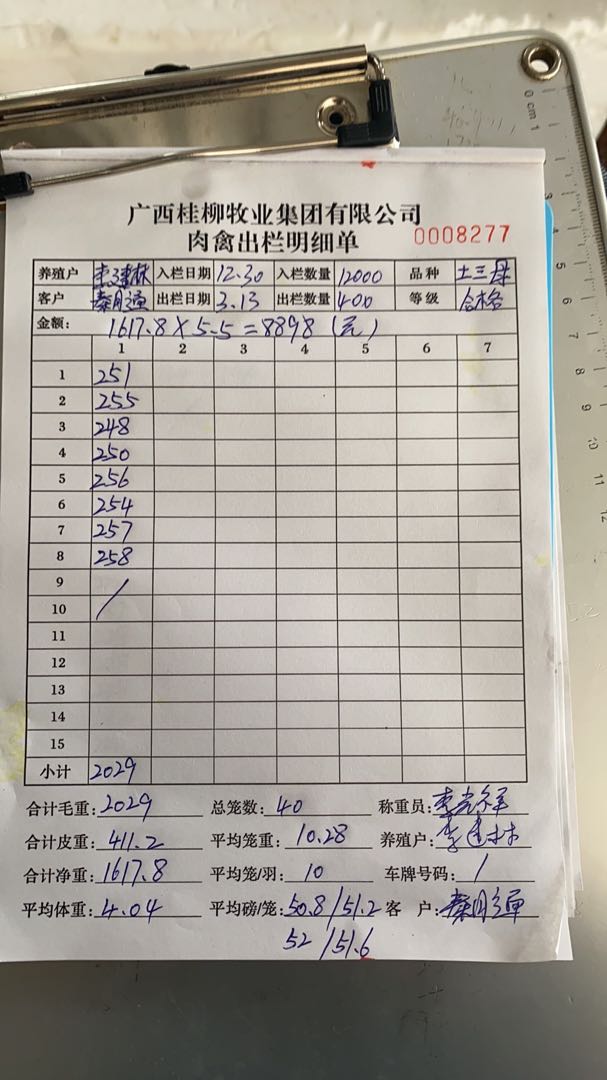 广西桂柳牧业集团有限公司
肉禽出栏明细单 0008277
养殖户 李建林 入栏日期 12.30 入栏数量 12000 品种 土三母
客户 秦明 出栏日期 3.13 出栏数量 400 等级 合格
金额: 1617.8×5.5=8898(元)
1 2 3 4 5 6 7
1 251
2 255
3 248
4 250
5 256
6 254
7 257
8 258
9
10 /
11
12
13
14
15
小计 2029
合计毛重: 2029 总笼数: 40 称重员: 李
合计皮重: 411.2 平均笼重: 10.28 养殖户: 李建林
合计净重: 1617.8 平均笼/羽: 10 车牌号码: /
平均体重: 4.04 平均磅/笼: 50.8/51.2 客 户: 秦明
52/51.6
0cm 1
3 4 5 6 7 8 9 10 11 12